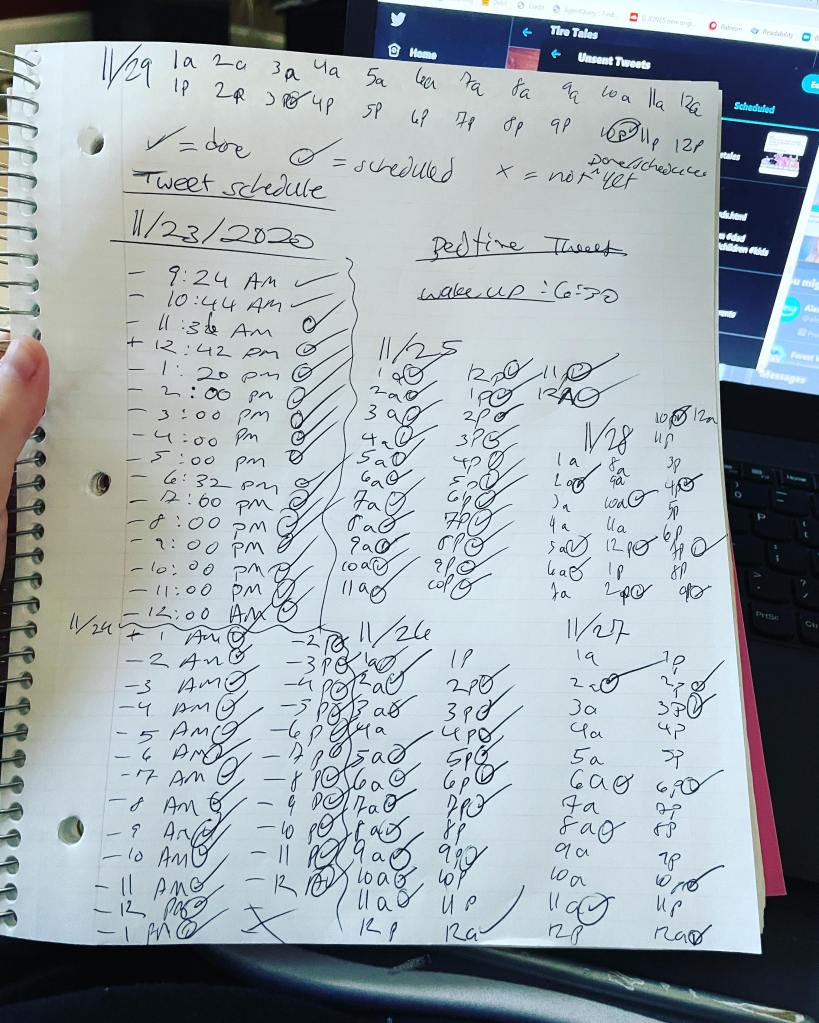 Debit
Credit
Patreon
Readability
Home
Tire Tales
Unsent Tweets
Scheduled
Messages
PrtSc
11/29 1a 2a 3a 4a 5a 6a 7a 8a 9a 10a 11a 12a
1p 2p 3p 4p 5p 6p 7p 8p 9p 10p 11p 12p
✓ = done = scheduled x = not Done/scheduled yet
Tweet schedule
11/23/2020
Bedtime Tweet
wake up : 6:30
- 9:24 AM ✓
- 10:44 AM ✓
- 11:36 AM ✓
+ 12:42 pm ✓
- 1:20 pm ✓
- 2:00 pm ✓
- 3:00 pm ✓
- 4:00 pm ✓
- 5:00 pm ✓
- 6:32 pm ✓
- 7:00 pm ✓
- 8:00 pm ✓
- 9:00 pm ✓
- 10:00 pm ✓
- 11:00 pm ✓
- 12:00 AM ✓
11/24
+ 1 AM ✓ - 2p ✓
- 2 AM ✓ - 3p ✓
- 3 AM ✓ - 4p ✓
- 4 AM ✓ - 5p ✓
- 5 AM ✓ - 6p ✓
- 6 AM ✓ - 7p ✓
- 7 AM ✓ - 8p ✓
- 8 AM ✓ - 9p ✓
- 9 AM ✓ - 10p ✓
- 10 AM ✓ - 11p ✓
- 11 AM ✓ - 12 A ✓
- 12 pm ✓
- 1 pm ✓ x
11/25
1a ✓ 12p ✓ 11p ✓
2a ✓ 1p ✓ 12A ✓
3a ✓ 2p ✓
4a ✓ 3p ✓
5a ✓ 4p ✓
6a ✓ 5p ✓
7a ✓ 6p ✓
8a ✓ 7p ✓
9a ✓ 8p ✓
10a ✓ 9p ✓
11a ✓ 10p ✓
11/28
10p ✓ 12a
11p
1a 8a 3p
2a ✓ 9a 4p ✓
3a 10a ✓ 5p
4a 11a 6p
5a ✓ 12p ✓ 7p ✓
6a ✓ 1p 8p
7a 2p ✓ 9p ✓
11/26
1a ✓ 1p
2a ✓ 2p ✓
3a ✓ 3p ✓
4a 4p ✓
5a ✓ 5p ✓
6a ✓ 6p ✓
7a ✓ 7p ✓
8a ✓ 8p
9a ✓ 9p ✓
10a ✓ 10p
11a ✓ 11p
12p 12a ✓
11/27
1a 1p
2a ✓ 2p ✓
3a 3p ✓
4a 4p
5a 5p
6a ✓ 6p ✓
7a 7p
8a ✓ 8p
9a 9p
10a 10p ✓
11a ✓ 11p
12p 12a ✓